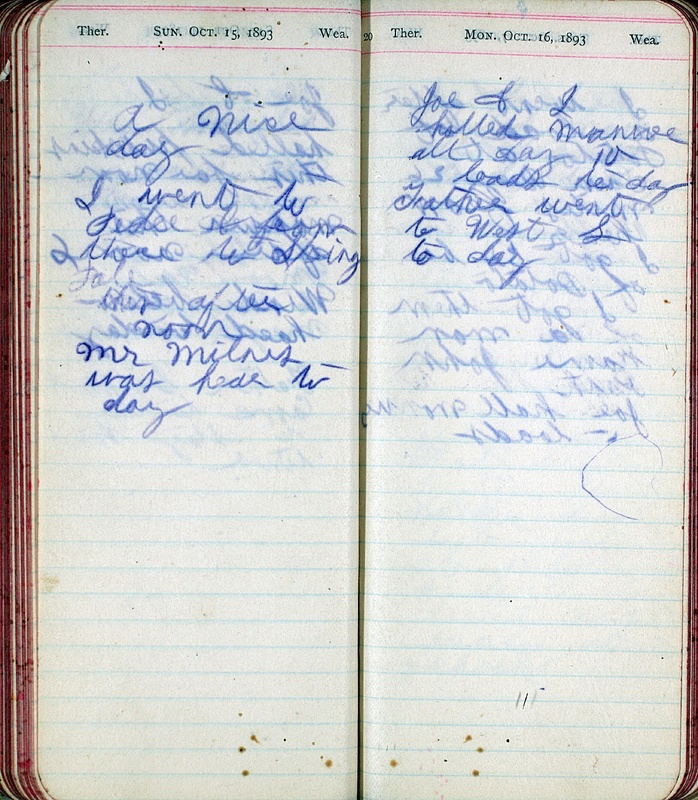 Ther. SUN. OCT. 15, 1893 Wea.
A Nice
day
I went to
from
there to Spring
this after
noon
Mr Milnes
was hear to
day
20
Ther. MON. OCT. 16, 1893 Wea.
Joe & I
holled Manure
all day 10
loads to day
Father went
to West L
to day